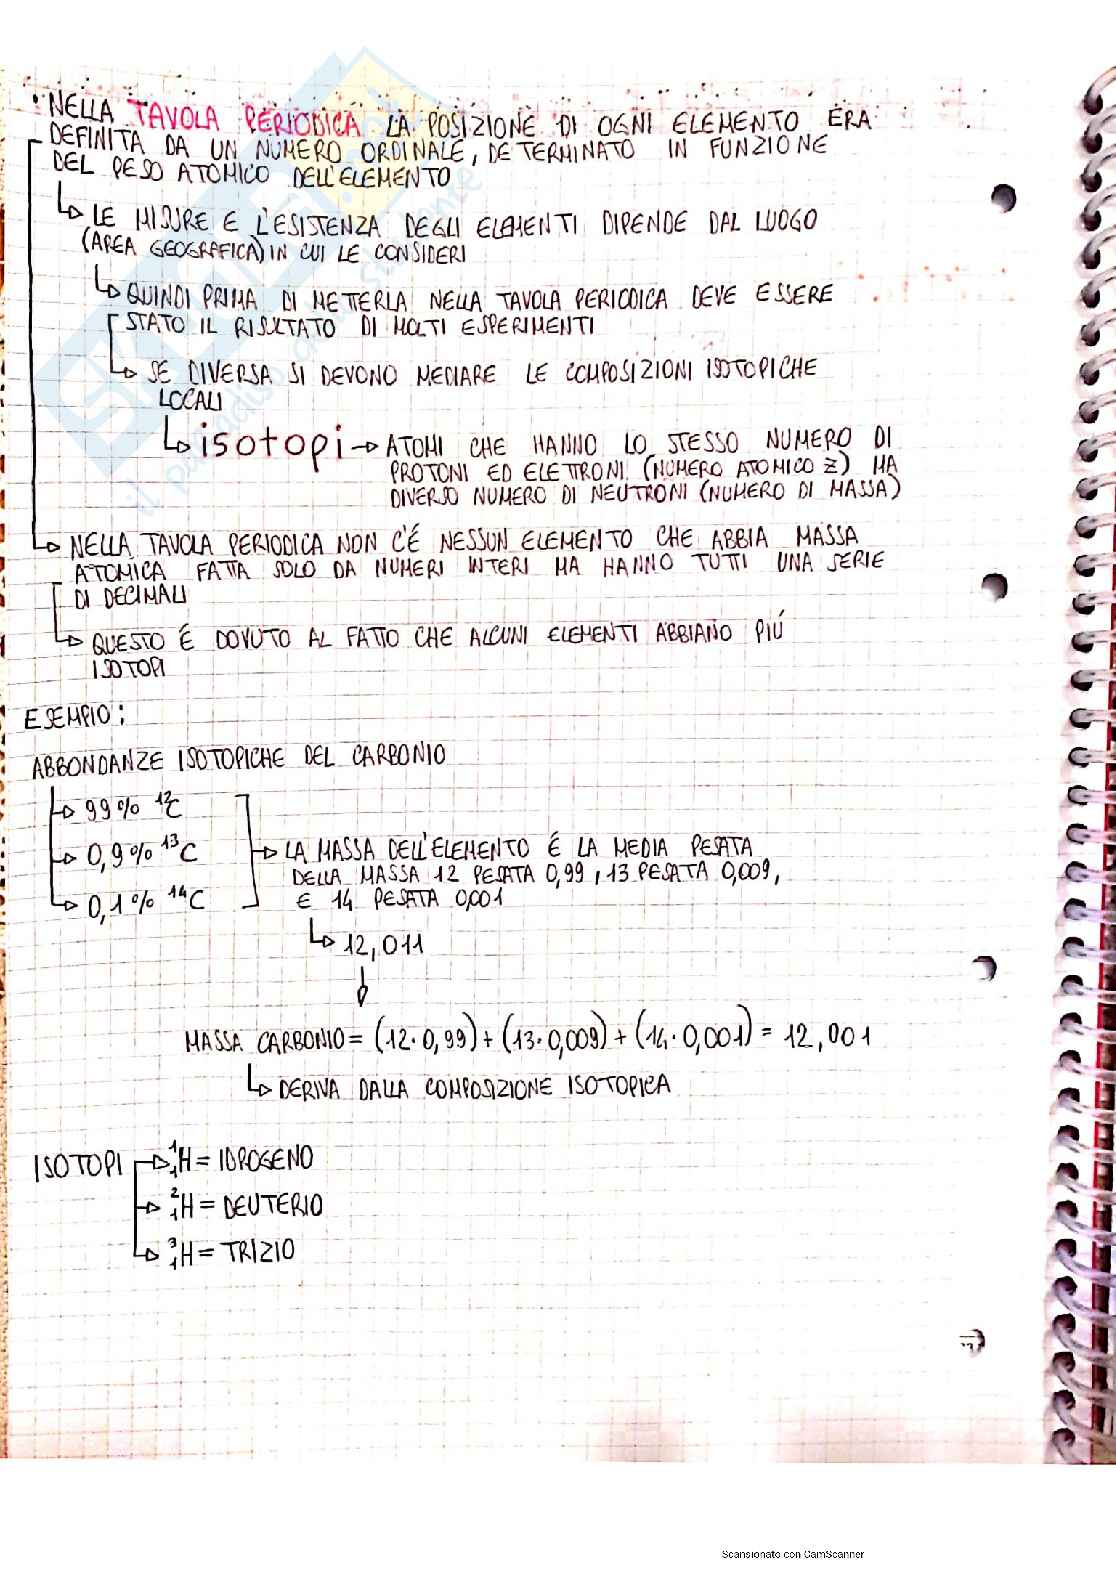 • NELLA TAVOLA PERIODICA LA POSIZIONE DI OGNI ELEMENTO ERA
DEFINITA DA UN NUMERO ORDINALE, DETERMINATO IN FUNZIONE
DEL PESO ATOMICO DELL'ELEMENTO
LE MISURE E L'ESISTENZA DEGLI ELEMENTI DIPENDE DAL LUOGO
(AREA GEOGRAFICA) IN CUI LE CONSIDERI
QUINDI PRIMA DI METTERLA NELLA TAVOLA PERIODICA DEVE ESSERE
STATO IL RISULTATO DI MOLTI ESPERIMENTI
SE DIVERSA SI DEVONO MEDIARE LE COMPOSIZIONI ISOTOPICHE
LOCALI
isotopi → ATOMI CHE HANNO LO STESSO NUMERO DI
PROTONI ED ELETTRONI (NUMERO ATOMICO Z) MA
DIVERSO NUMERO DI NEUTRONI (NUMERO DI MASSA)
NELLA TAVOLA PERIODICA NON C'É NESSUN ELEMENTO CHE ABBIA MASSA
ATOMICA FATTA SOLO DA NUMERI INTERI MA HANNO TUTTI UNA SERIE
DI DECIMALI
QUESTO É DOVUTO AL FATTO CHE ALCUNI ELEMENTI ABBIANO PIÚ
ISOTOPI
ESEMPIO:
ABBONDANZE ISOTOPICHE DEL CARBONIO
99% ¹²C
0,9% ¹³C
0,1% ¹⁴C
LA MASSA DELL'ELEMENTO É LA MEDIA PESATA
DELLA MASSA 12 PESATA 0,99, 13 PESATA 0,009,
E 14 PESATA 0,001
12,011
MASSA CARBONIO = (12·0,99) + (13·0,009) + (14·0,001) = 12,001
DERIVA DALLA COMPOSIZIONE ISOTOPICA
ISOTOPI → ¹₁H = IDROGENO
²₁H = DEUTERIO
³₁H = TRIZIO
Scansionato con CamScanner